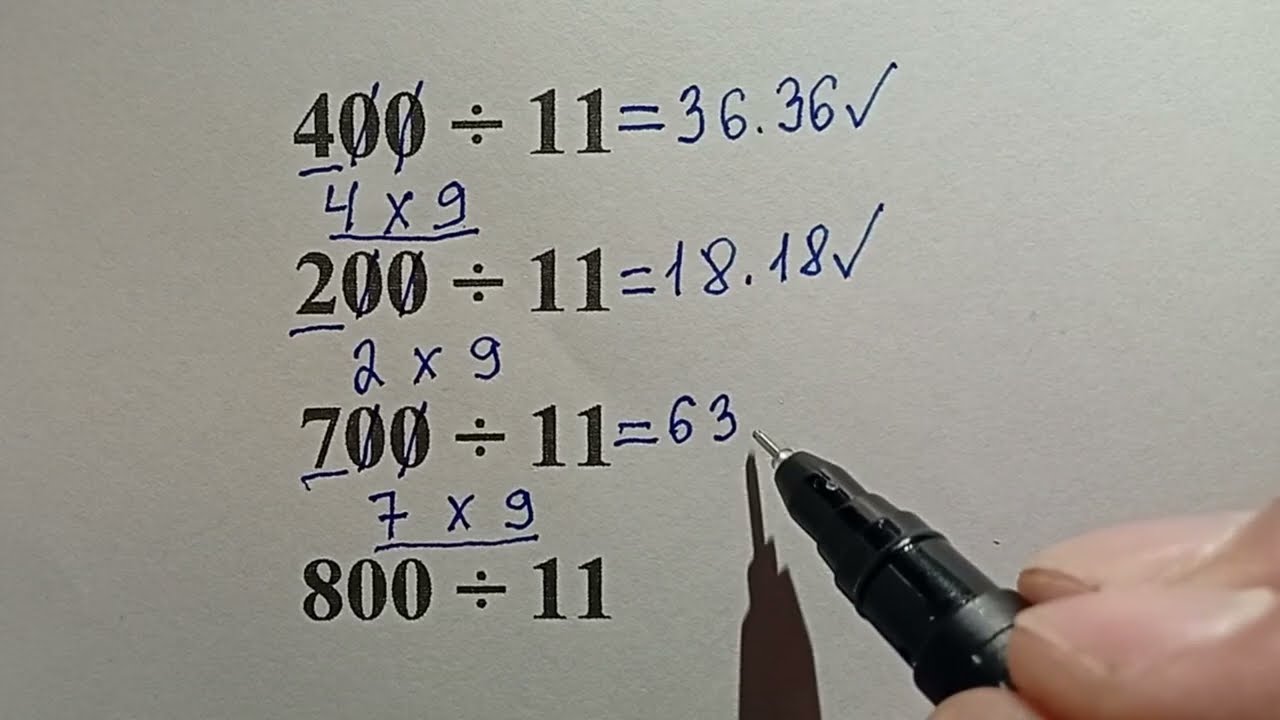 400 ÷ 11 = 36.36 ✓
4 x 9
200 ÷ 11 = 18.18 ✓
2 x 9
700 ÷ 11 = 63
7 x 9
800 ÷ 11